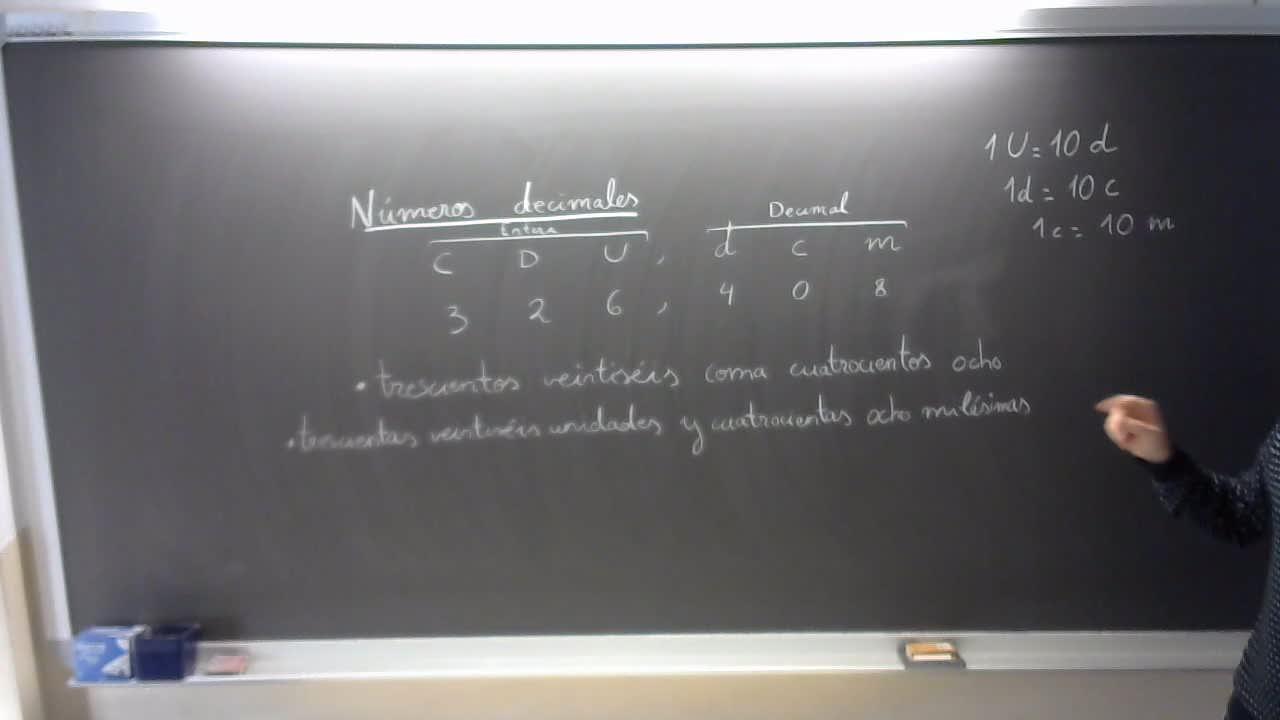 Números decimales
Entera Decimal
C D U , d c m
3 2 6 , 4 0 8
• trescientos veintiséis coma cuatrocientos ocho
• trescientas veintiséis unidades y cuatrocientas ocho milésimas
1 U = 10 d
1d = 10 c
1c = 10 m